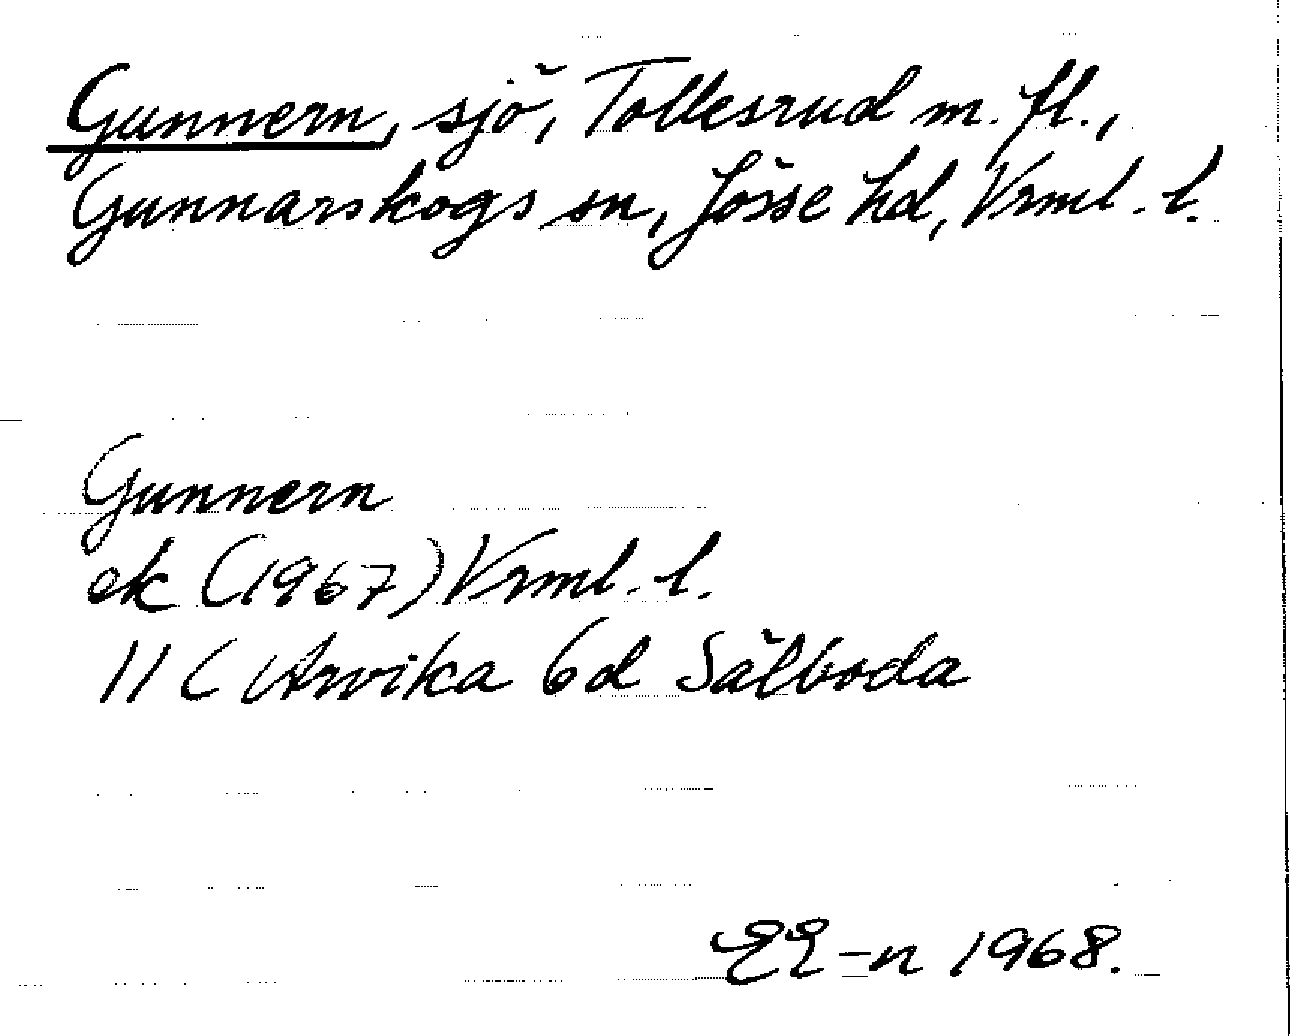 Gunnern, sjö, Tollesrud m. fl.,
Gunnarskogs sn, Jösse hd, Vrml. l.
Gunnern
ek (1967) Vrml. l.
11 C Arvika 6d Sälboda
EE-n 1968.